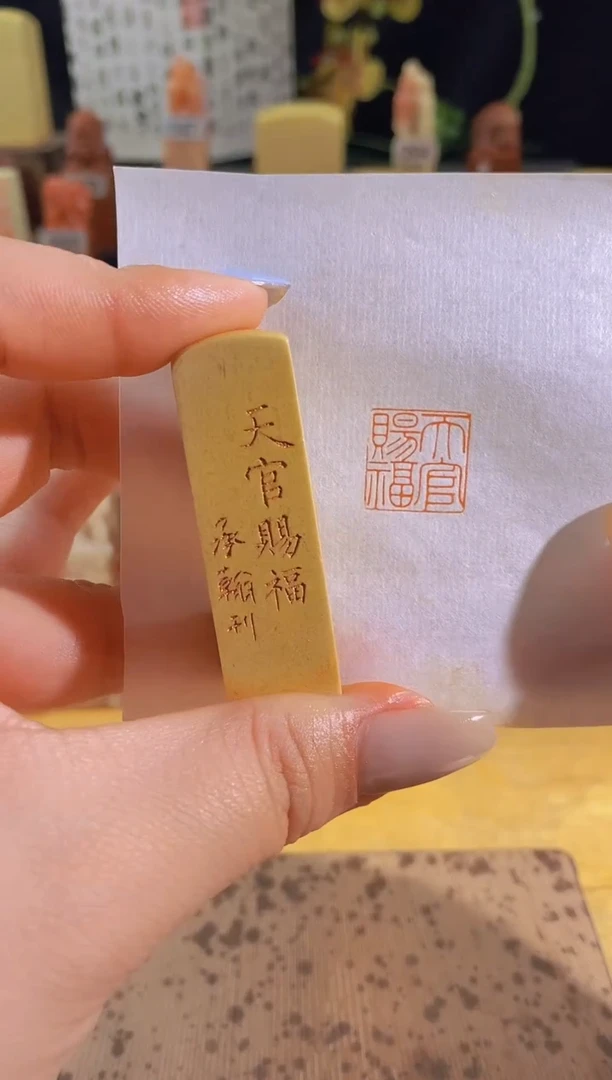 天官賜福
承翰刊
天官
賜福